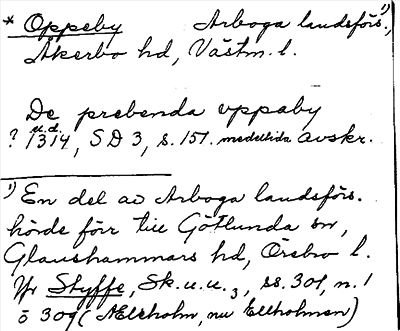 * Oppeby Arboga landsförs.¹⁾,
Åkerbo hd, Västm. l.
De prebenda vppaby
? u.d. 1314, SD 3, s. 151. medeltida avskr.
¹⁾ En del av Arboga landsförs.
hörde förr till Götlunda sn,
Glanshammars hd, Örebro l.
Jfr Styffe, Sk. u. u. 3, ss. 301, n. 1
o 309 (Ælleholm, nu Ellholmen)